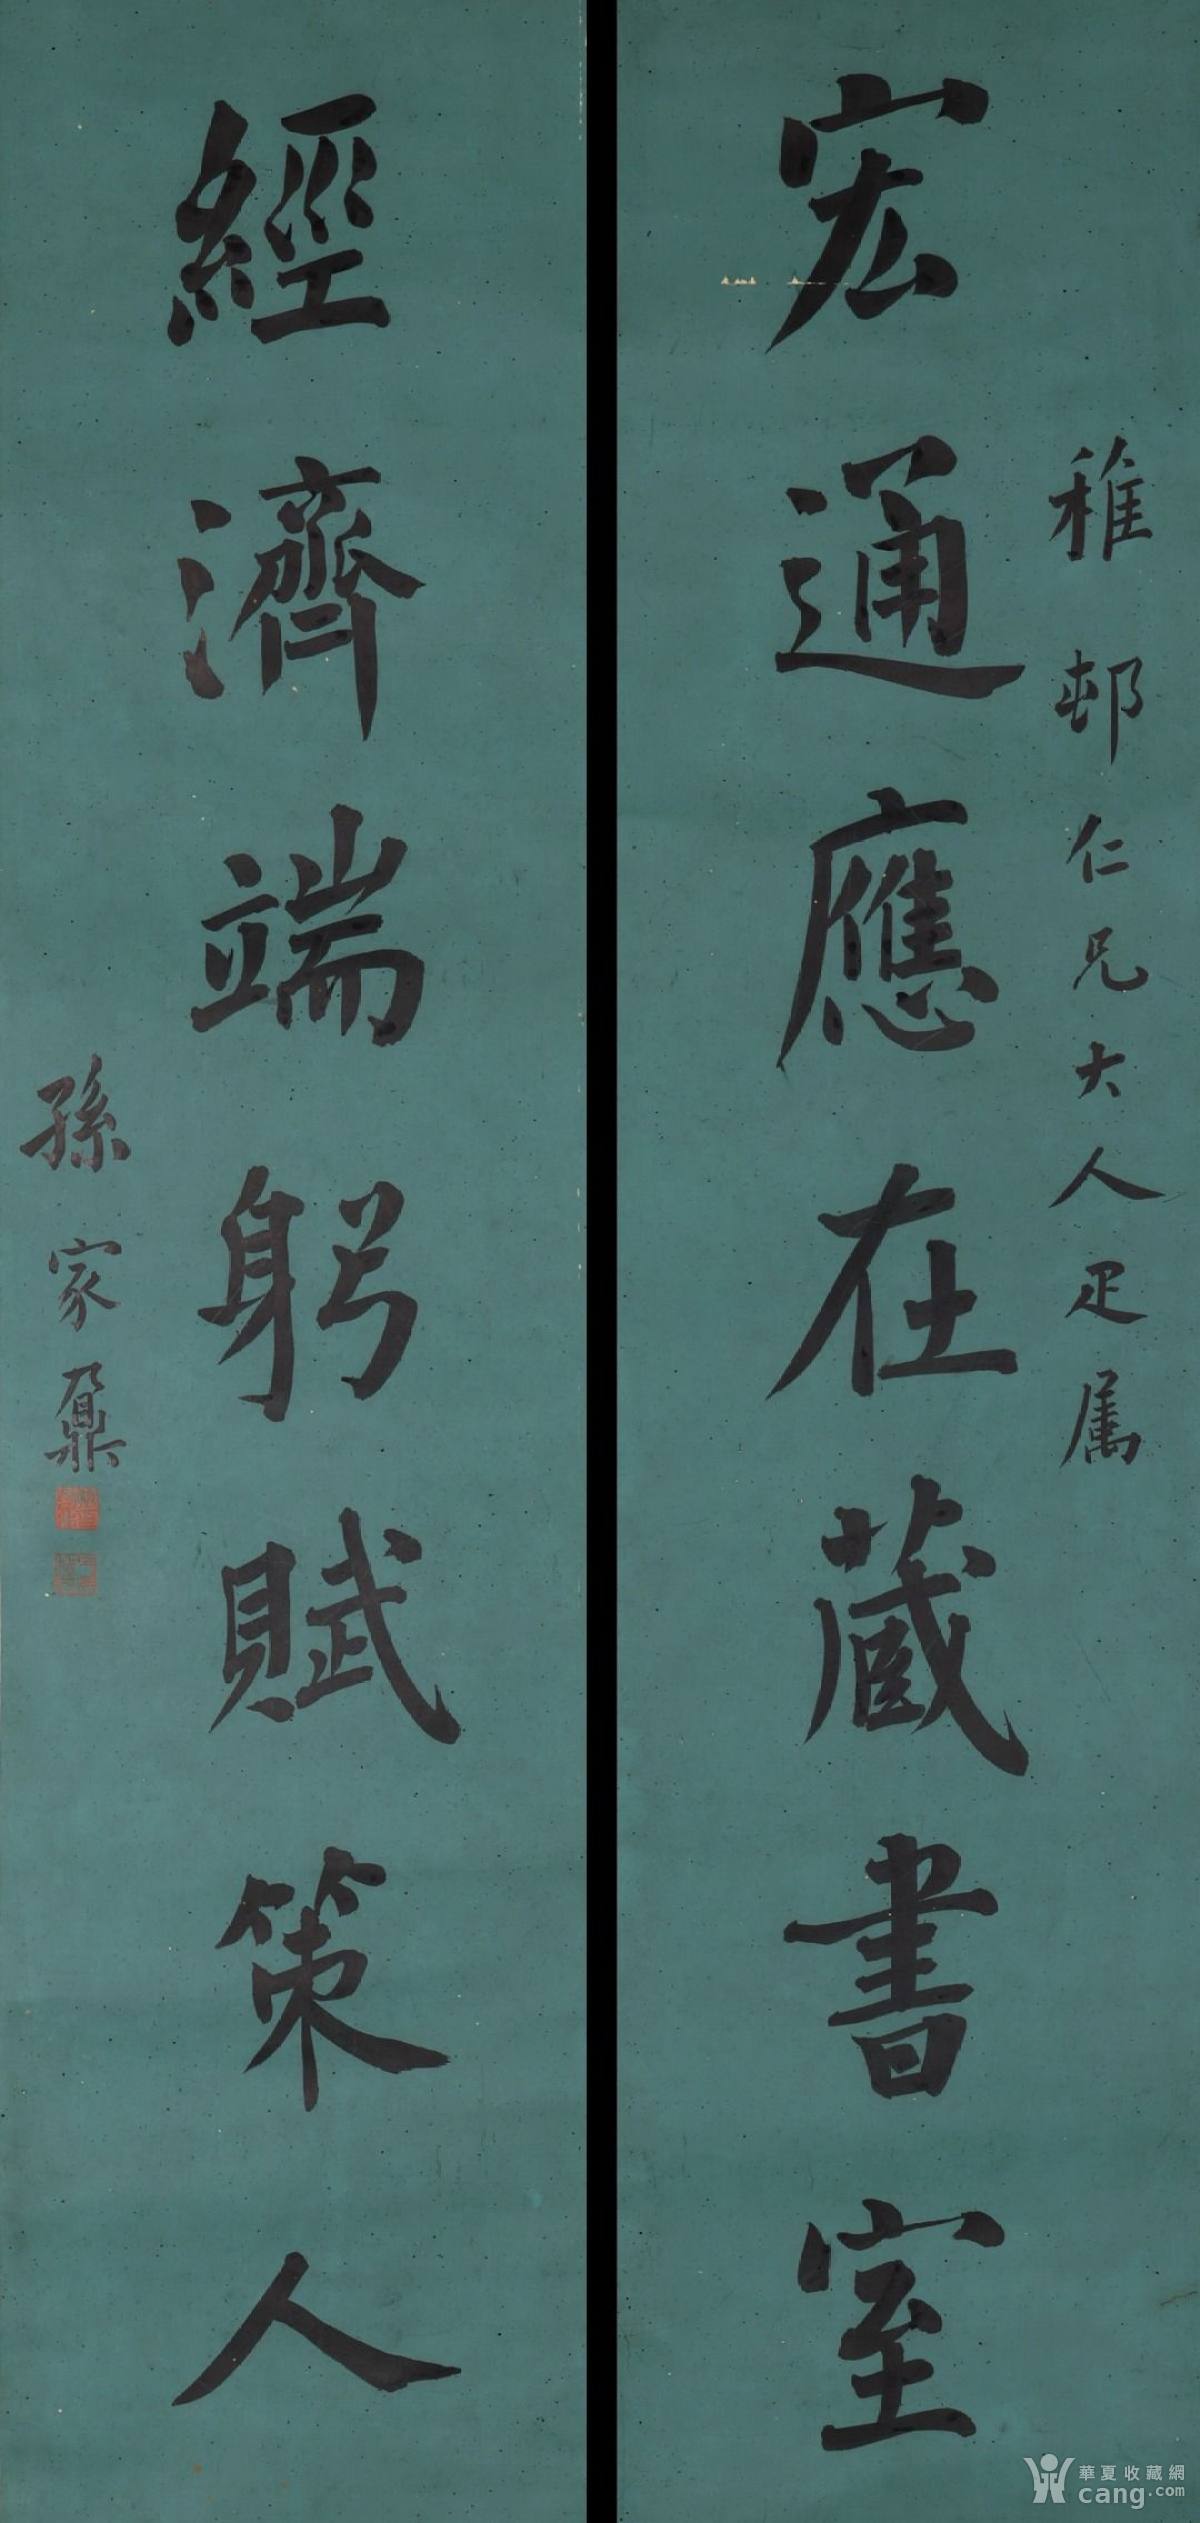 稚邨仁兄大人疋属
宏通應在蔵書室
經濟端躬賦策人
孫家鼐
華夏收藏網
cang.com